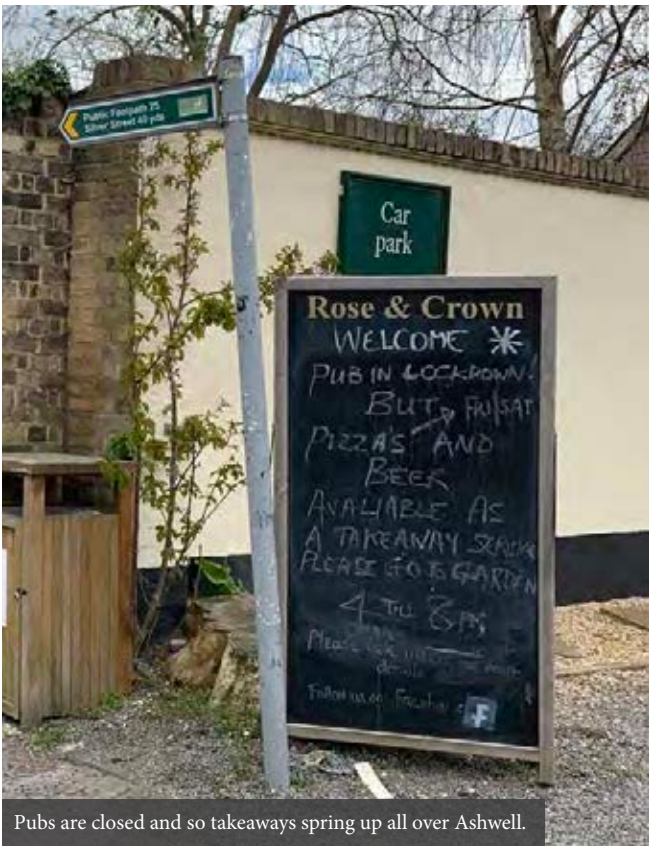 Public Footpath 25
Silver Street 40 yds
Car
park
Rose & Crown
WELCOME
PUB IN LOCKDOWN!
BUT FRI/SAT
PIZZA'S AND
BEER
AVALIABLE AS
A TAKEAWAY SERVICE
PLEASE GO TO GARDEN
4 TILL 8PM
Please
details
Follow us on Facebook
Pubs are closed and so takeaways spring up all over Ashwell.